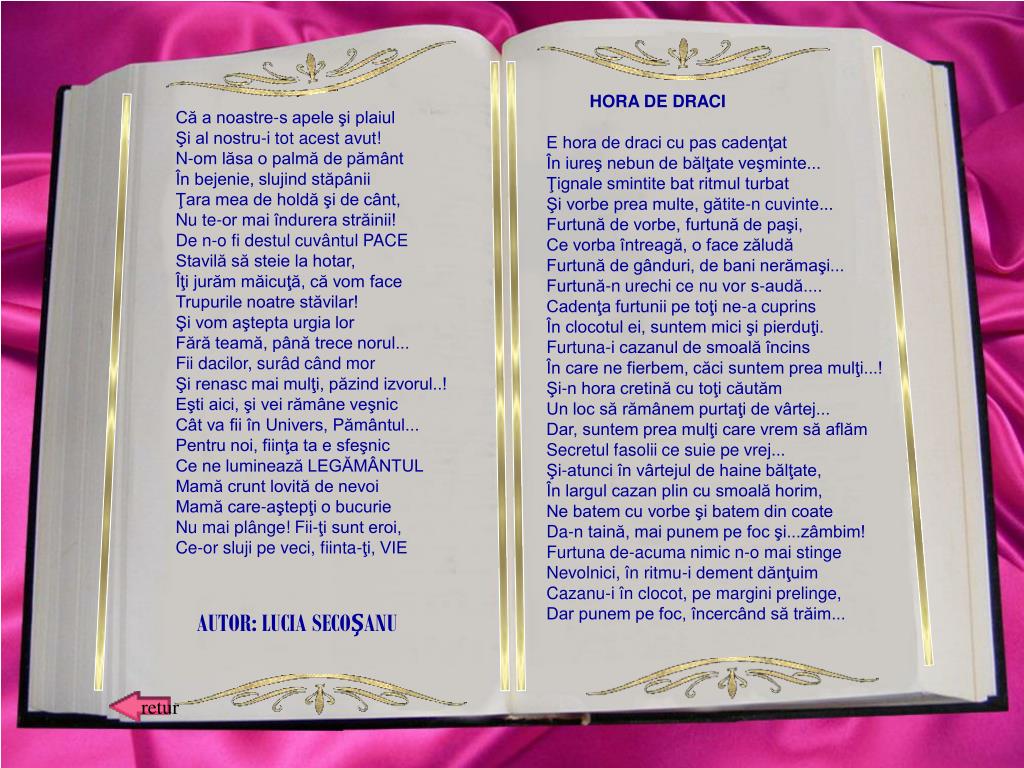 Că a noastre-s apele şi plaiul
Şi al nostru-i tot acest avut!
N-om lăsa o palmă de pământ
În bejenie, slujind stăpânii
Ţara mea de holdă şi de cânt,
Nu te-or mai îndurera străinii!
De n-o fi destul cuvântul PACE
Stavilă să steie la hotar,
Îţi jurăm măicuţă, că vom face
Trupurile noatre stăvilar!
Şi vom aştepta urgia lor
Fără teamă, până trece norul...
Fii dacilor, surâd când mor
Şi renasc mai mulţi, păzind izvorul..!
Eşti aici, şi vei rămâne veşnic
Cât va fii în Univers, Pământul...
Pentru noi, fiinţa ta e sfeşnic
Ce ne luminează LEGĂMÂNTUL
Mamă crunt lovită de nevoi
Mamă care-aştepţi o bucurie
Nu mai plânge! Fii-ţi sunt eroi,
Ce-or sluji pe veci, fiinta-ţi, VIE
AUTOR: LUCIA SECOŞANU
retur
HORA DE DRACI
E hora de draci cu pas cadenţat
În iureş nebun de bălţate veşminte...
Ţignale smintite bat ritmul turbat
Şi vorbe prea multe, gătite-n cuvinte...
Furtună de vorbe, furtună de paşi,
Ce vorba întreagă, o face zăludă
Furtună de gânduri, de bani nerămaşi...
Furtună-n urechi ce nu vor s-audă....
Cadenţa furtunii pe toţi ne-a cuprins
În clocotul ei, suntem mici şi pierduţi.
Furtuna-i cazanul de smoală încins
În care ne fierbem, căci suntem prea mulţi...!
Şi-n hora cretină cu toţi căutăm
Un loc să rămânem purtaţi de vârtej...
Dar, suntem prea mulţi care vrem să aflăm
Secretul fasolii ce suie pe vrej...
Şi-atunci în vârtejul de haine bălţate,
În largul cazan plin cu smoală horim,
Ne batem cu vorbe şi batem din coate
Da-n taină, mai punem pe foc şi...zâmbim!
Furtuna de-acuma nimic n-o mai stinge
Nevolnici, în ritmu-i dement dănţuim
Cazanu-i în clocot, pe margini prelinge,
Dar punem pe foc, încercând să trăim...